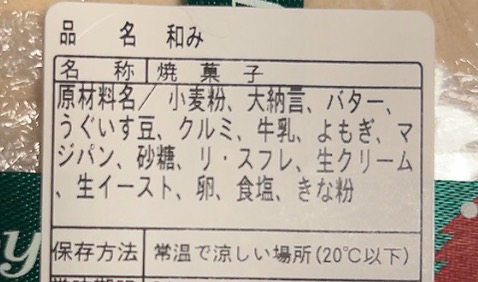 品 名 和み
名 称 焼 菓 子
原材料名/ 小麦粉、大納言、バター、
うぐいす豆、クルミ、牛乳、よもぎ、マ
ジパン、砂糖、リ・スフレ、生クリーム
、生イースト、卵、食塩、きな粉
保存方法 常温で涼しい場所(20℃以下)